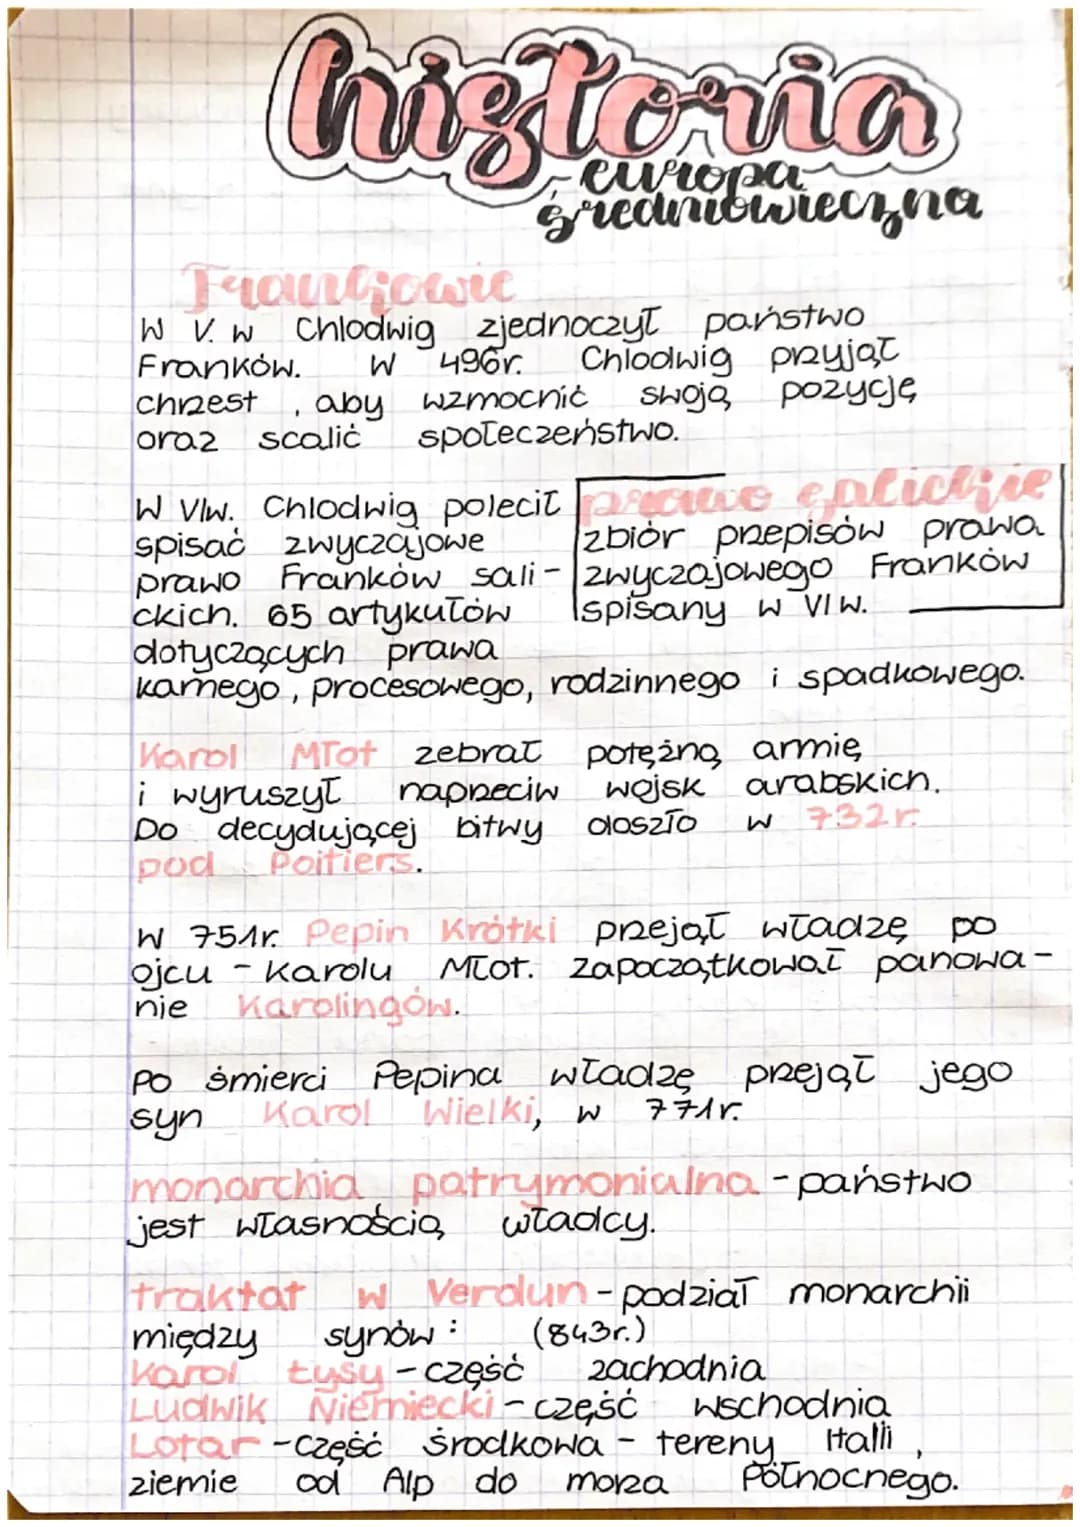 historia
europa
średniowieczna
Frankowie
W V. w Chlodwig zjednoczył państwo
Franków. W 496r. Chlodwig przyjął
chrzest, aby wzmocnić swoją pozycję
oraz scalić społeczeństwo.
W VIw. Chlodwig polecił
spisać zwyczajowe
prawo Franków sali-
ckich. 65 artykułów
dotyczących prawa
karnego, procesowego, rodzinnego i spadkowego.
prawo salickie
zbiór przepisów prawa
zwyczajowego Franków
spisany w VI w.
Karol Młot zebrał potężną armię
i wyruszył naprzeciw wojsk arabskich.
Do decydującej bitwy doszło w 732r.
pod Poitiers.
W 751r. Pepin Krótki przejął władzę po
ojcu - Karolu Młot. Zapoczątkował panowa-
nie Karolingów.
Po śmierci Pepina władzę przejął jego
syn Karol Wielki, w 771r.
monarchia patrymonialna - państwo
jest własnością władcy.
traktat w Verdun - podział monarchii
między synów: (843r.)
Karol Łysy - część zachodnia
Ludwik Niemiecki - część wschodnia
Lotar - część środkowa - tereny Italii,
ziemie od Alp do morza Północnego.